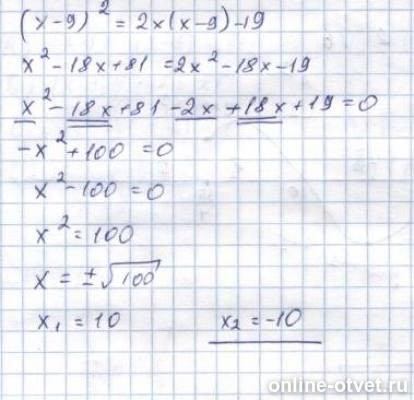 (x-9)² = 2x(x-9)-19
x²-18x+81 = 2x²-18x-19
x²-18x+81-2x+18x+19=0
-x²+100=0
x²-100=0
x²=100
x=±√100
x₁=10 x₂=-10
online-otvet.ru